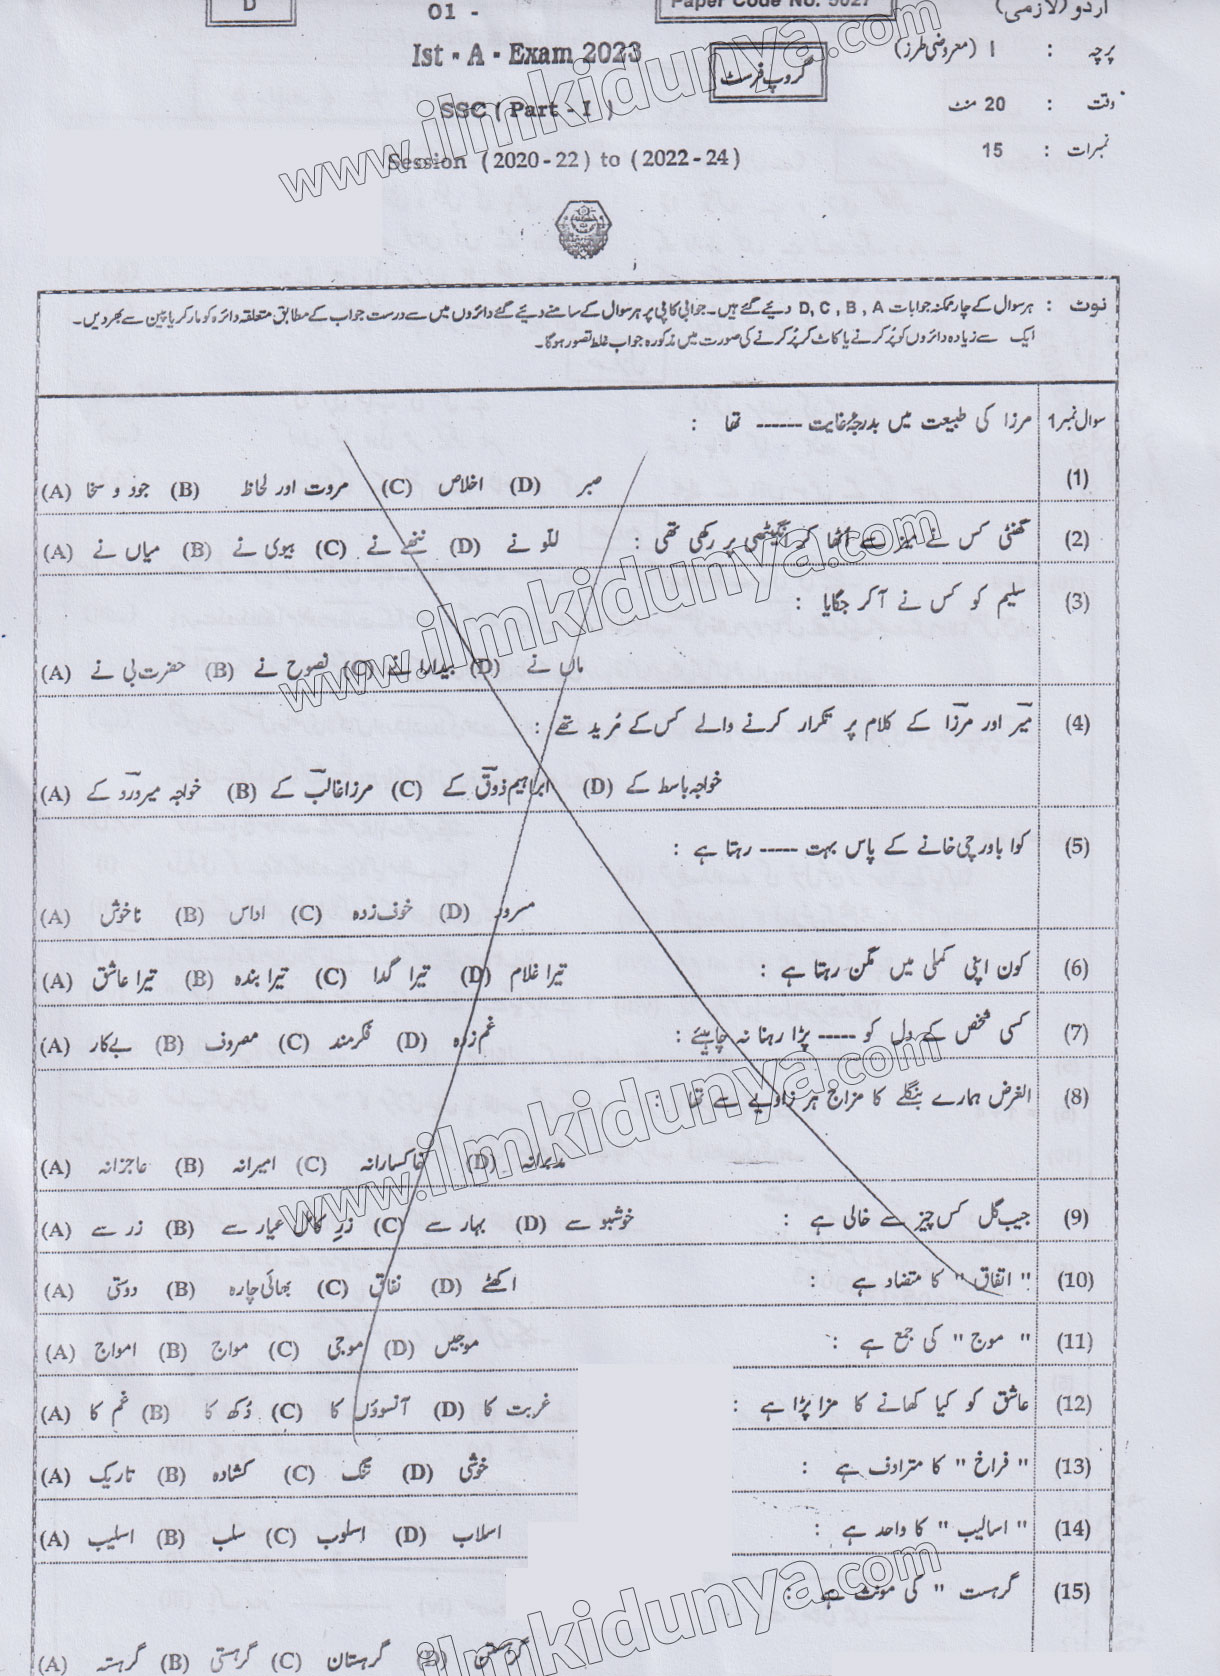 D
01 -
Paper Code No. 5027
اردو (لازمی)
Ist - A - Exam 2023
پرچہ : I (معروضی طرز)
گروپ فرسٹ
SSC ( Part - I )
وقت : 20 منٹ
Session (2020-22) to (2022-24)
نمبرات : 15
www.ilmkidunya.com
نوٹ : ہر سوال کے چار ممکنہ جوابات D, C , B , A دیئے گئے ہیں۔ جوابی کاپی پر ہر سوال کے سامنے دیئے گئے دائروں میں سے درست جواب کے مطابق متعلقہ دائرہ کو مارکر یا پین سے بھر دیں۔
ایک سے زیادہ دائروں کو پُر کرنے یا کاٹ کر پُر کرنے کی صورت میں مذکورہ جواب غلط تصور ہوگا۔
سوال نمبر 1 مرزا کی طبیعت میں بدرجۂ غایت ------ تھا :
(1)
(A) جود و سخا (B) مروت اور لحاظ (C) اخلاص (D) صبر
(2) گھنٹی کس نے میز سے اُٹھا کر انگیٹھی پر رکھی تھی : (A) میاں نے (B) بیوی نے (C) ننھے نے (D) للّو نے
www.ilmkidunya.com
(3) سلیم کو کس نے آ کر جگایا :
(A) حضرت بی نے (B) نصوح نے (C) بیدارا نے (D) ماں نے
(4) میر اور مرزا کے کلام پر تکرار کرنے والے کس کے مُرید تھے :
(A) خواجہ میر درد کے (B) مرزا غالب کے (C) ابراہیم ذوق کے (D) خواجہ باسط کے
(5) کوا باورچی خانے کے پاس بہت ----- رہتا ہے :
(A) ناخوش (B) اداس (C) خوف زدہ (D) مسرور
(6) کون اپنی کملی میں مگن رہتا ہے : (A) تیرا عاشق (B) تیرا بندہ (C) تیرا گدا (D) تیرا غلام
(7) کسی شخص کے دل کو ----- پڑا رہنا نہ چاہیئے : (A) بے کار (B) مصروف (C) فکرمند (D) غم زدہ
(8) الغرض ہمارے بنگلے کا مزاج ہر زاویے سے تھا :
www.ilmkidunya.com
(A) عاجزانہ (B) امیرانہ (C) خاکسارانہ (D) مدبرانہ
(9) جیب گل کس چیز سے خالی ہے : (A) زر سے (B) زرِ کامل عیار سے (C) بہار سے (D) خوشبو سے
(10) " اتفاق " کا متضاد ہے : (A) دوستی (B) بھائی چارہ (C) نفاق (D) اکٹھے
(11) " موج " کی جمع ہے : (A) امواج (B) مواج (C) موجی (D) موجیں
(12) عاشق کو کیا کھانے کا مزا پڑا ہے : (A) غم کا (B) دُکھ کا (C) آنسوؤں کا (D) غربت کا
(13) " فراخ " کا مترادف ہے : (A) تاریک (B) کشادہ (C) تنگ (D) خوشی
(14) " اسالیب " کا واحد ہے : (A) اسلیب (B) سلب (C) اسلوب (D) اسلاب
(15) گرہست " کی مونث ہے :
www.ilmkidunya.com
(A) گرہستہ (B) گرہستی (C) گرہستان (D) گرہستن